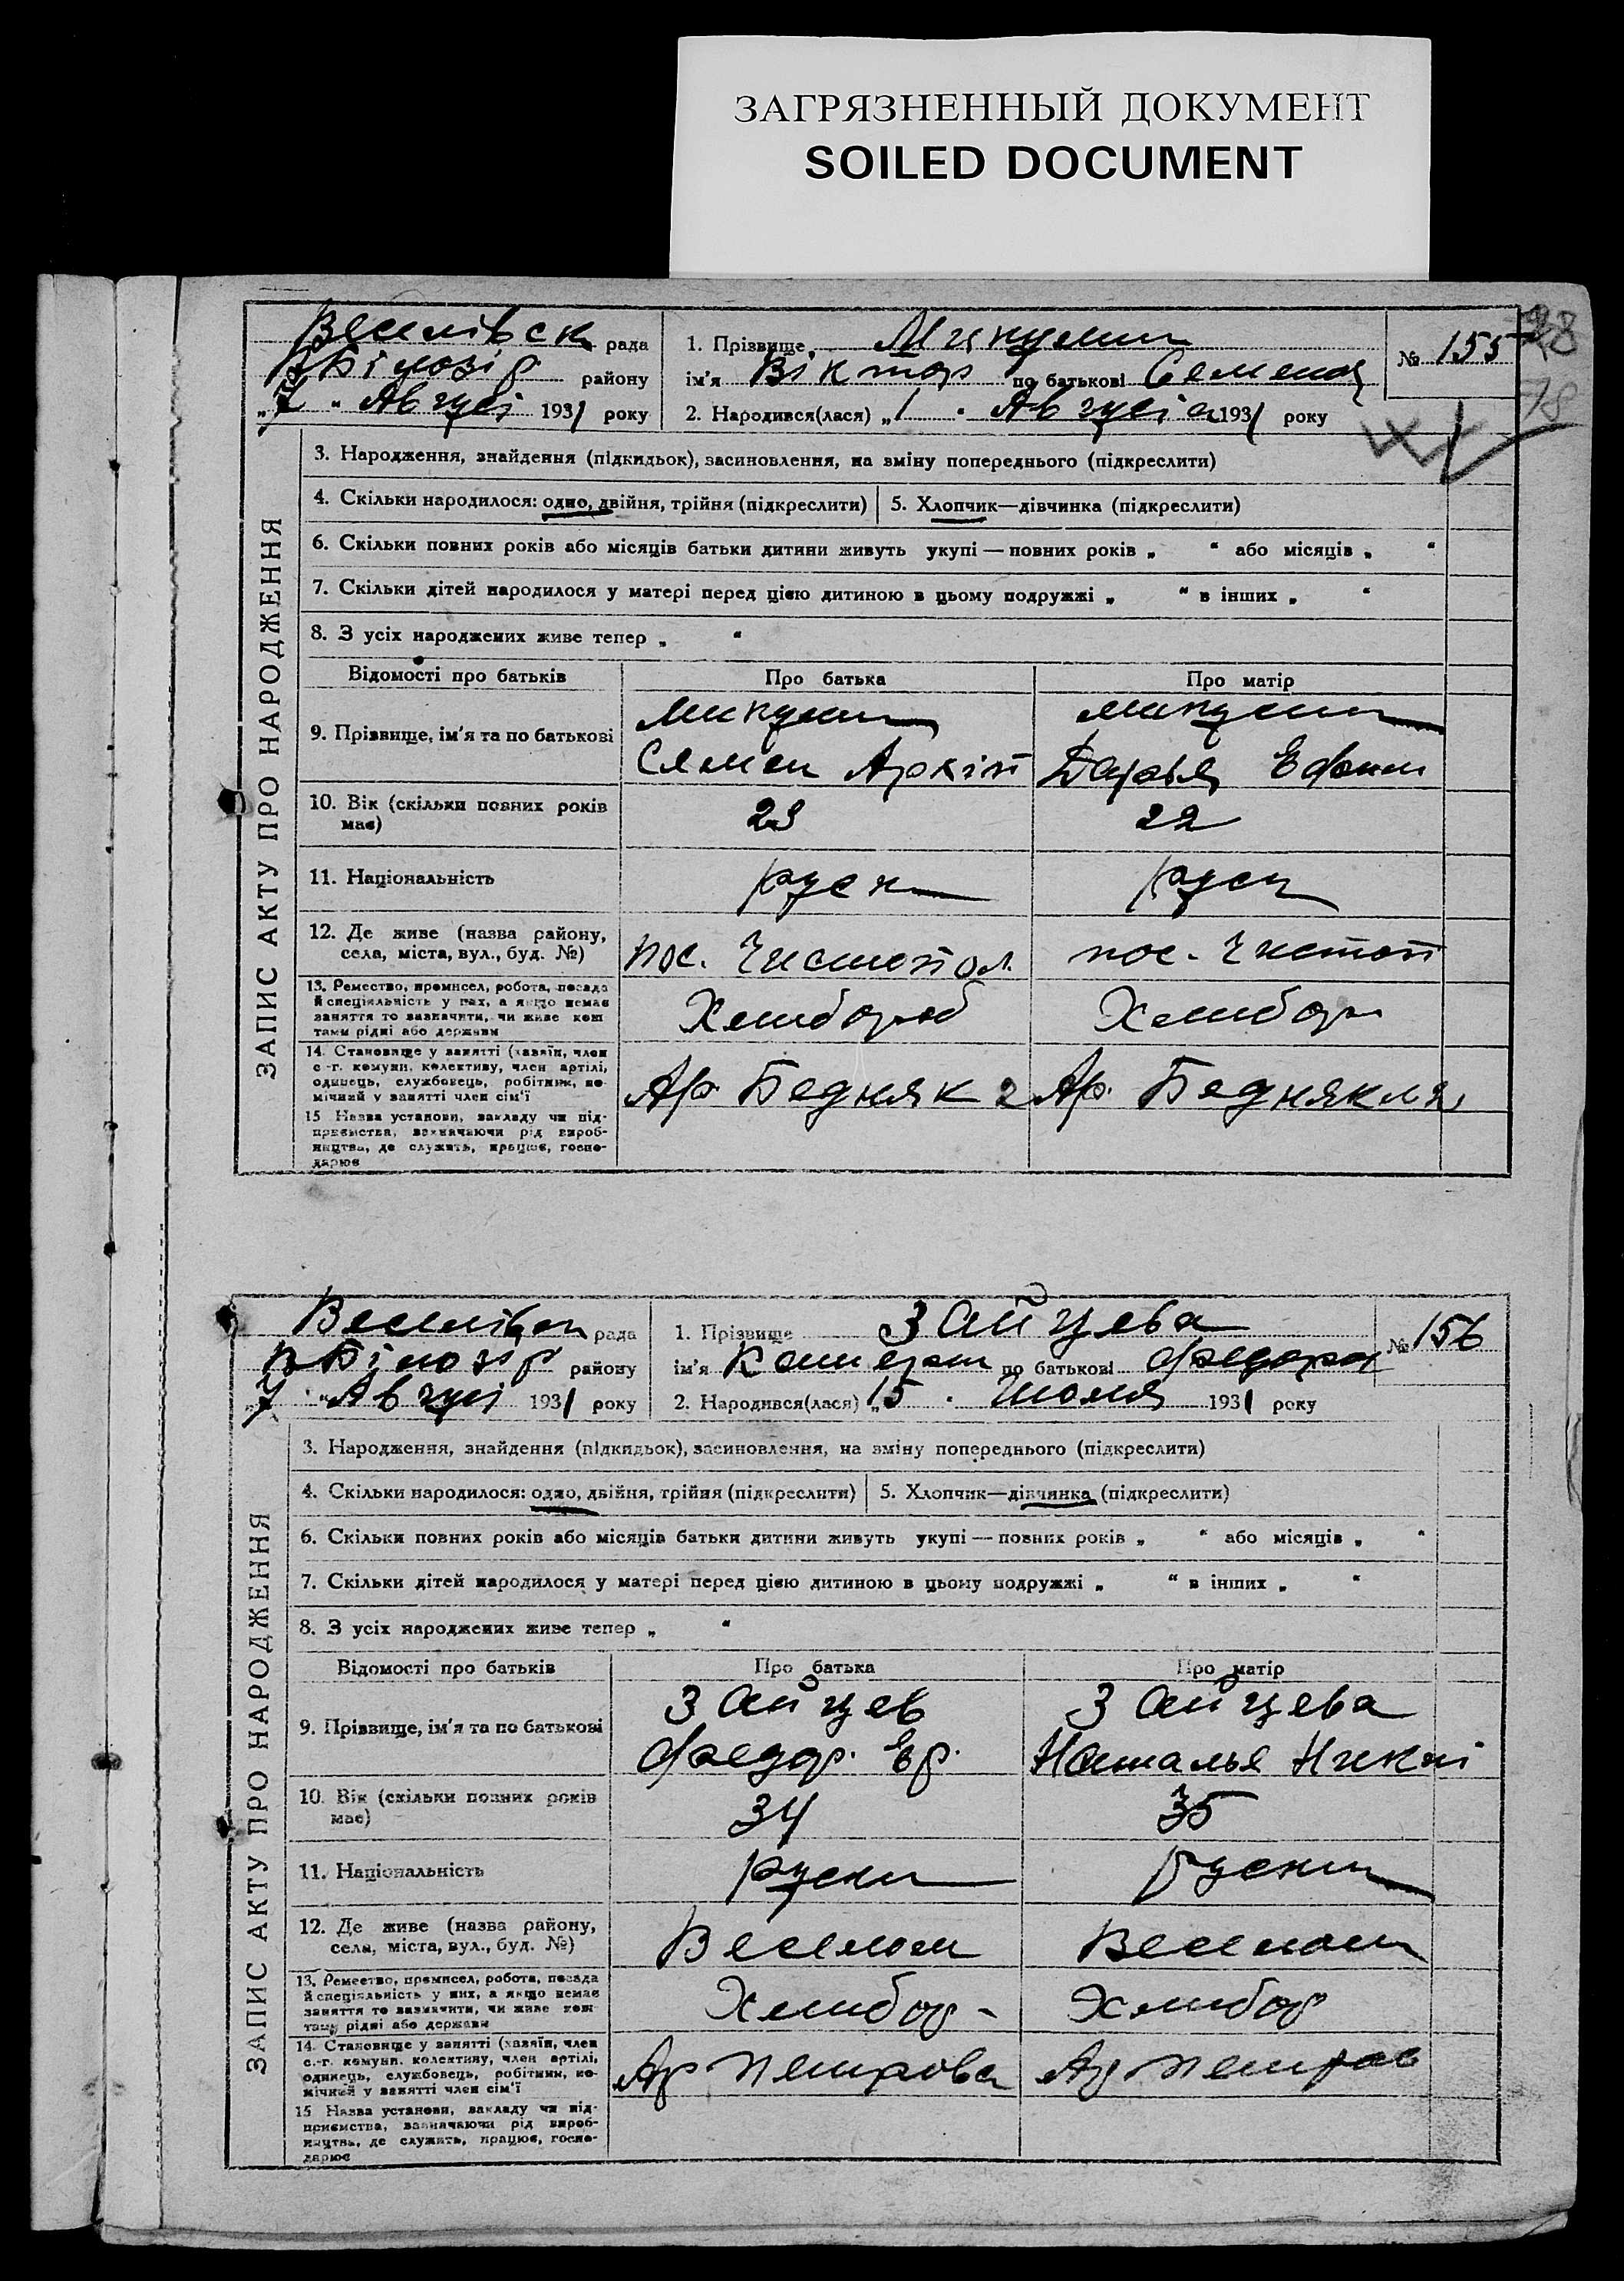 ЗАГРЯЗНЕННЫЙ ДОКУМЕНТ
SOILED DOCUMENT
78
рада
району
"7" Август 1931 року
1. Прізвище
ім'я Віктор по батькові Семенов
2. Народився(лася) "1" Августа 1931 року
№ 155
ЗАПИС АКТУ ПРО НАРОДЖЕННЯ
3. Народження, знайдення (підкидьок), засиновлення, на зміну попереднього (підкреслити)
4. Скільки народилося: одно, двійня, трійня (підкреслити)
5. Хлопчик—дівчинка (підкреслити)
6. Скільки повних років або місяців батьки дитини живуть укупі — повних років „ “ або місяців „ “
7. Скільки дітей народилося у матері перед цією дитиною в цьому подружжі „ “ в інших „ “
8. З усіх народжених живе тепер „ “
Відомості про батьків
Про батька
Про матір
9. Прізвище, ім'я та по батькові
Семен Архіп
Дарья Ефим
10. Вік (скільки повних років має)
23
22
11. Національність
руск
руск
12. Де живе (назва району, села, міста, вул., буд. №)
пос. Чистопол.
пос. Чистоп
13. Ремество, промисел, робота, посада
й спеціяльність у них, а якщо немає
заняття то зазначити, чи живе кош
тами рідні або держави
Хлибороб
Хлибор
14. Становище у занятті (хазяїн, член
с.-г. комуни, колективу, член артілі,
одинець, службовець, робітник, по-
мічний у занятті член сім'ї
Ар Бедняк
Ар. Бедняк
15 Назва установи, закладу чи під-
приємства, зазначаючи рід вироб-
ництва, де служить, працює, госпо-
дарює
рада
району
7 "Август 1931 року
1. Прізвище Зайцева
ім'я по батькові Федоров
2. Народився(лася) "15 Июля 1931 року
№ 156
ЗАПИС АКТУ ПРО НАРОДЖЕННЯ
3. Народження, знайдення (підкидьок), засиновлення, на зміну попереднього (підкреслити)
4. Скільки народилося: одно, двійня, трійня (підкреслити)
5. Хлопчик—дівчинка (підкреслити)
6. Скільки повних років або місяців батьки дитини живуть укупі — повних років „ “ або місяців „ “
7. Скільки дітей народилося у матері перед цією дитиною в цьому подружжі „ “ в інших „ “
8. З усіх народжених живе тепер „ “
Відомості про батьків
Про батька
Про матір
9. Прізвище, ім'я та по батькові
Зайцев
Федор. Ев.
Зайцева
Наталья Никит
10. Вік (скільки повних років має)
34
35
11. Національність
руски
руски
12. Де живе (назва району, села, міста, вул., буд. №)
Веселом
Веселом
13. Ремество, промисел, робота, посада
й спеціяльність у них, а якщо немає
заняття то зазначити, чи живе кош-
тами рідні або держави
Хлибор -
Хлибор
14. Становище у занятті (хазяїн, член
с.-г. комуни, колективу, член артілі,
одинець, службовець, робітник, по-
мічний у занятті член сім'ї
Ар Петрова
Ар Петров
15 Назва установи, закладу чи під-
приємства, зазначаючи рід вироб-
ництва, де служить, працює, госпо-
дарює